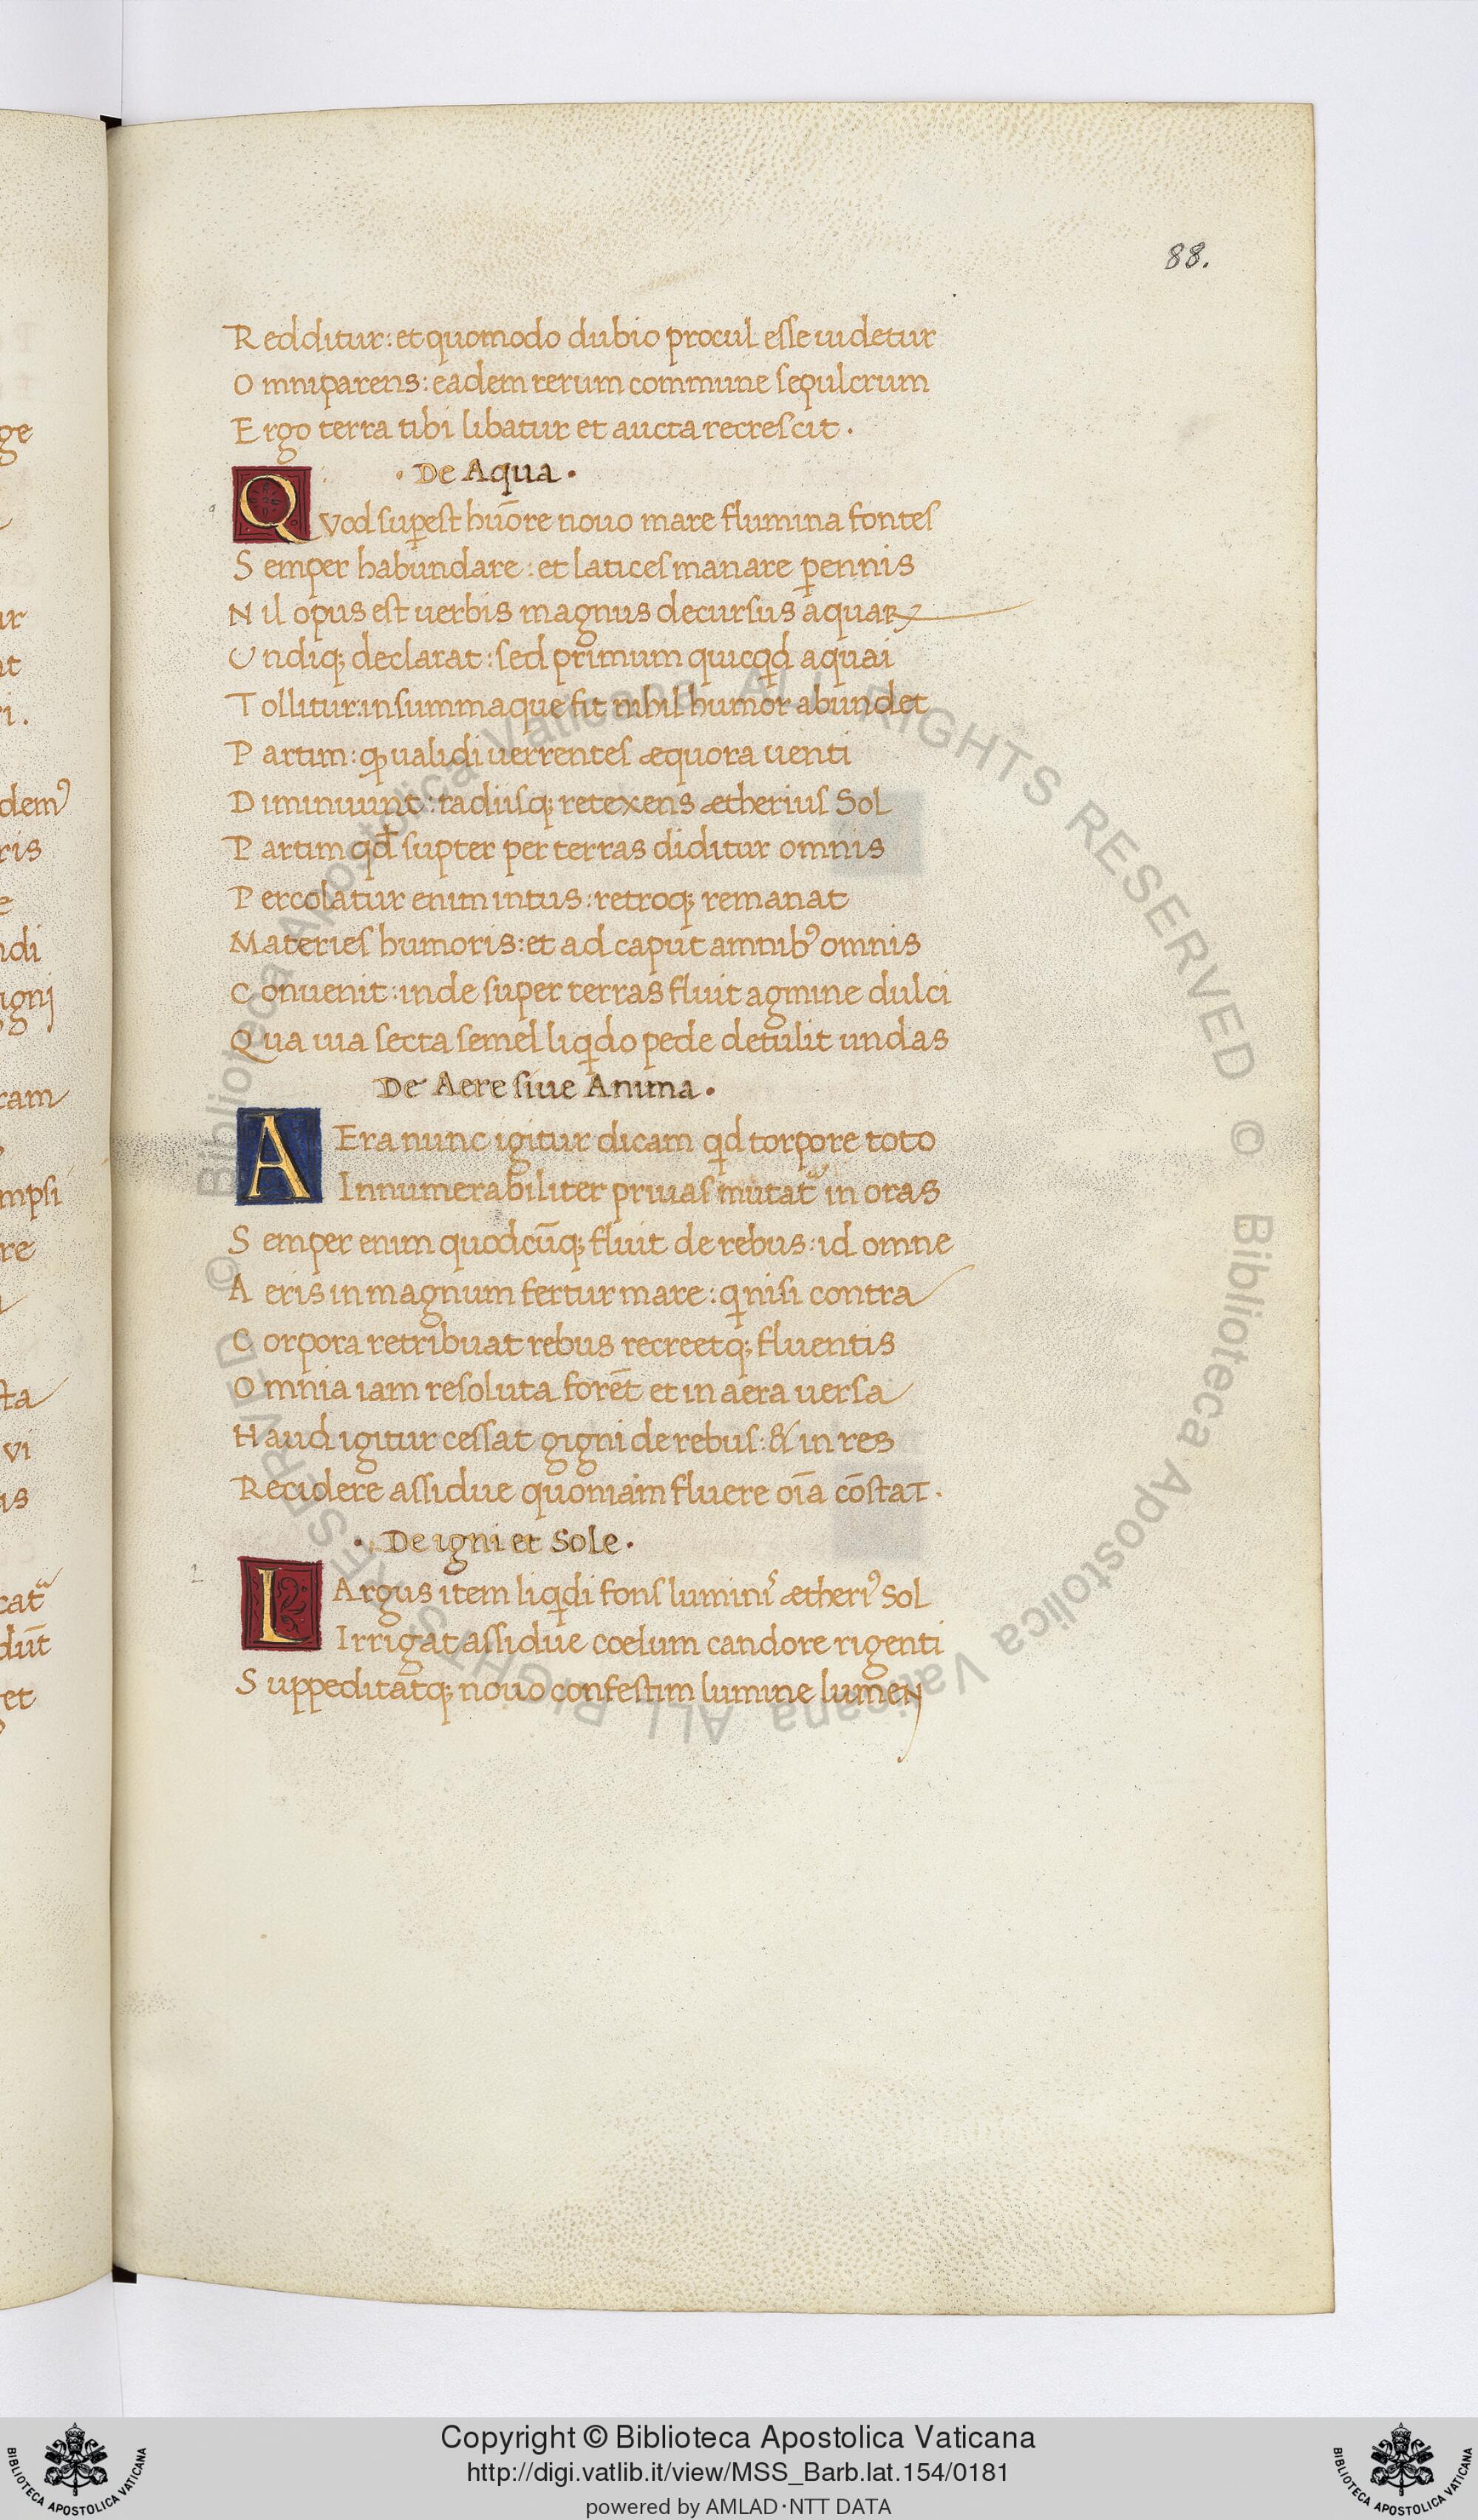 88.
Redditur: et quomodo dubio procul esse uidetur
Omniparens: eadem rerum commune sepulcrum
Ergo terra tibi libatur et aucta recrescit.
· De Aqua ·
Qvod suꝑest hūore nouo mare flumina fontes
Semper habundare: et latices manare ꝑennis
Nil opus est uerbis magnus decursus aquaꝝ
Undiqꝫ declarat: sed primum quicqd aquai
Tollitur: in summaque fit nihil humor abundet
Partim: ꝙ ualidi uerrentes æquora uenti
Diminuunt: radiisqꝫ retexens ætherius Sol
Partim qđ supter per terras diditur omnis
Percolatur enim intus: retroqꝫ remanat
Materies humoris: et ad caput amnibꝰ omnis
Conuenit: inde super terras fluit agmine dulci
Qua uia secta semel liqdo pede detulit undas
De Aere siue Anima ·
AEra nunc igitur dicam qd torpore toto
Innumerabiliter priuas mutat᷑ in oras
Semper enim quodcūqꝫ fluit de rebus: id omne
Aeris in magnum fertur mare: q nisi contra
Corpora retribuat rebus recreetqꝫ fluentis
Omnia iam resoluta forēt et in aera uersa
Haud igitur cessat gigni de rebus: & in res
Recidere assidue quoniam fluere oīa cōstat.
· De igni et Sole ·
LArgus item liqdi fons luminis ætheriꝰ Sol
Irrigat assidue coelum candore rigenti
Suppeditatqꝫ nouo confestim lumine lumen
ge
ur
nt
ri.
demꝰ
ris
e
ndi
ignj
ram
mpsi
re
sta
vi
is
cat᷑
dūt
et
© Biblioteca Apostolica Vaticana ALL RIGHTS RESERVED © Biblioteca Apostolica Vaticana ALL RIGHTS RESERVED
Copyright © Biblioteca Apostolica Vaticana
http://digi.vatlib.it/view/MSS_Barb.lat.154/0181
powered by AMLAD·NTT DATA
BIBLIOTECA APOSTOLICA VATICANA
BIBLIOTECA APOSTOLICA VATICANA